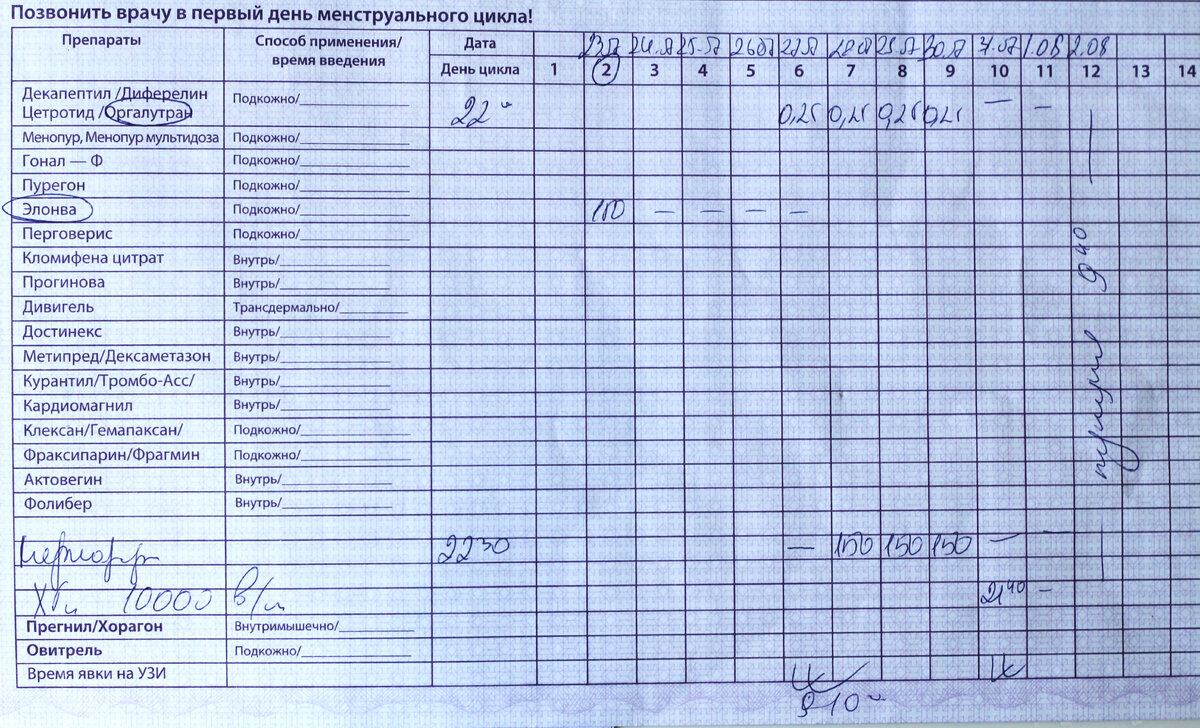 Позвонить врачу в первый день менструального цикла!
Препараты Способ применения/ время введения Дата 23.07 24.07 25.07 26.07 27.07 28.07 29.07 30.07 1.08 2.08
День цикла 1 2 3 4 5 6 7 8 9 10 11 12 13 14
Декапептил /Диферелин
Цетротид /Оргалутран Подкожно/ 22 ч 0,25 0,25 0,25 0,25 — —
Менопур, Менопур мультидоза Подкожно/
Гонал — Ф Подкожно/
Пурегон Подкожно/
Элонва Подкожно/ 150 — — — —
Перговерис Подкожно/
Кломифена цитрат Внутрь/
Прогинова Внутрь/
Дивигель Трансдермально/
Достинекс Внутрь/
Метипред/Дексаметазон Внутрь/
Курантил/Тромбо-Асс/ Внутрь/
Кардиомагнил Внутрь/
Клексан/Гемапаксан/ Подкожно/
Фраксипарин/Фрагмин Подкожно/
Актовегин Внутрь/
Фолибер Внутрь/
22 30 — 150 150 150 — —
10000 в/м 21 40 —
Прегнил/Хорагон Внутримышечно/
Овитрель Подкожно/
Время явки на УЗИ
пункция 9 40